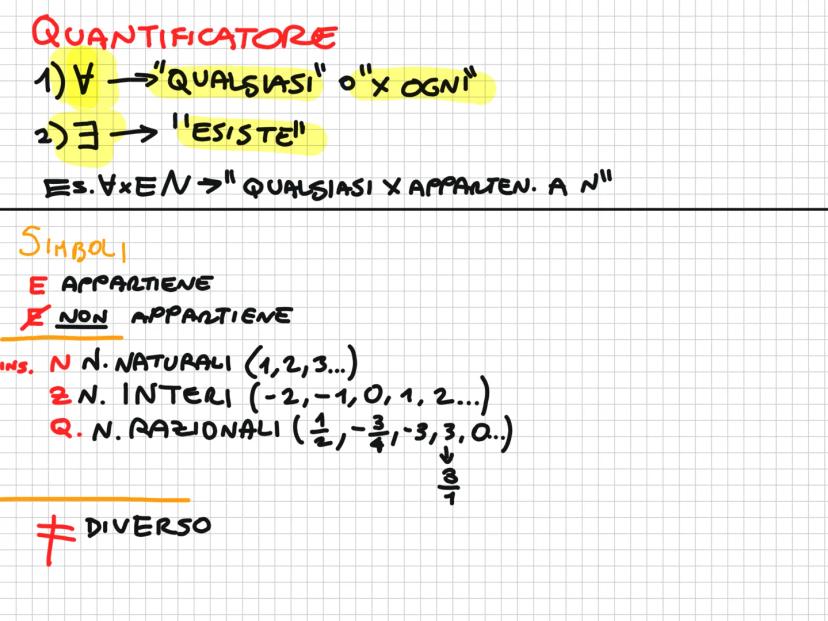 QUANTIFICATORE
1) ∀ → "QUALSIASI" O "X OGNI"
2) ∃ → "ESISTE"
Es. ∀x∈N → "QUALSIASI X APPARTEN. A N"
SIMBOLI
∈ APPARTIENE
∉ NON APPARTIENE
INS. N N. NATURALI (1, 2, 3...)
Z N. INTERI (-2, -1, 0, 1, 2...)
Q. N. RAZIONALI (1/2, -3/4, -3, 3, 0...)
↓
3/1
≠ DIVERSO